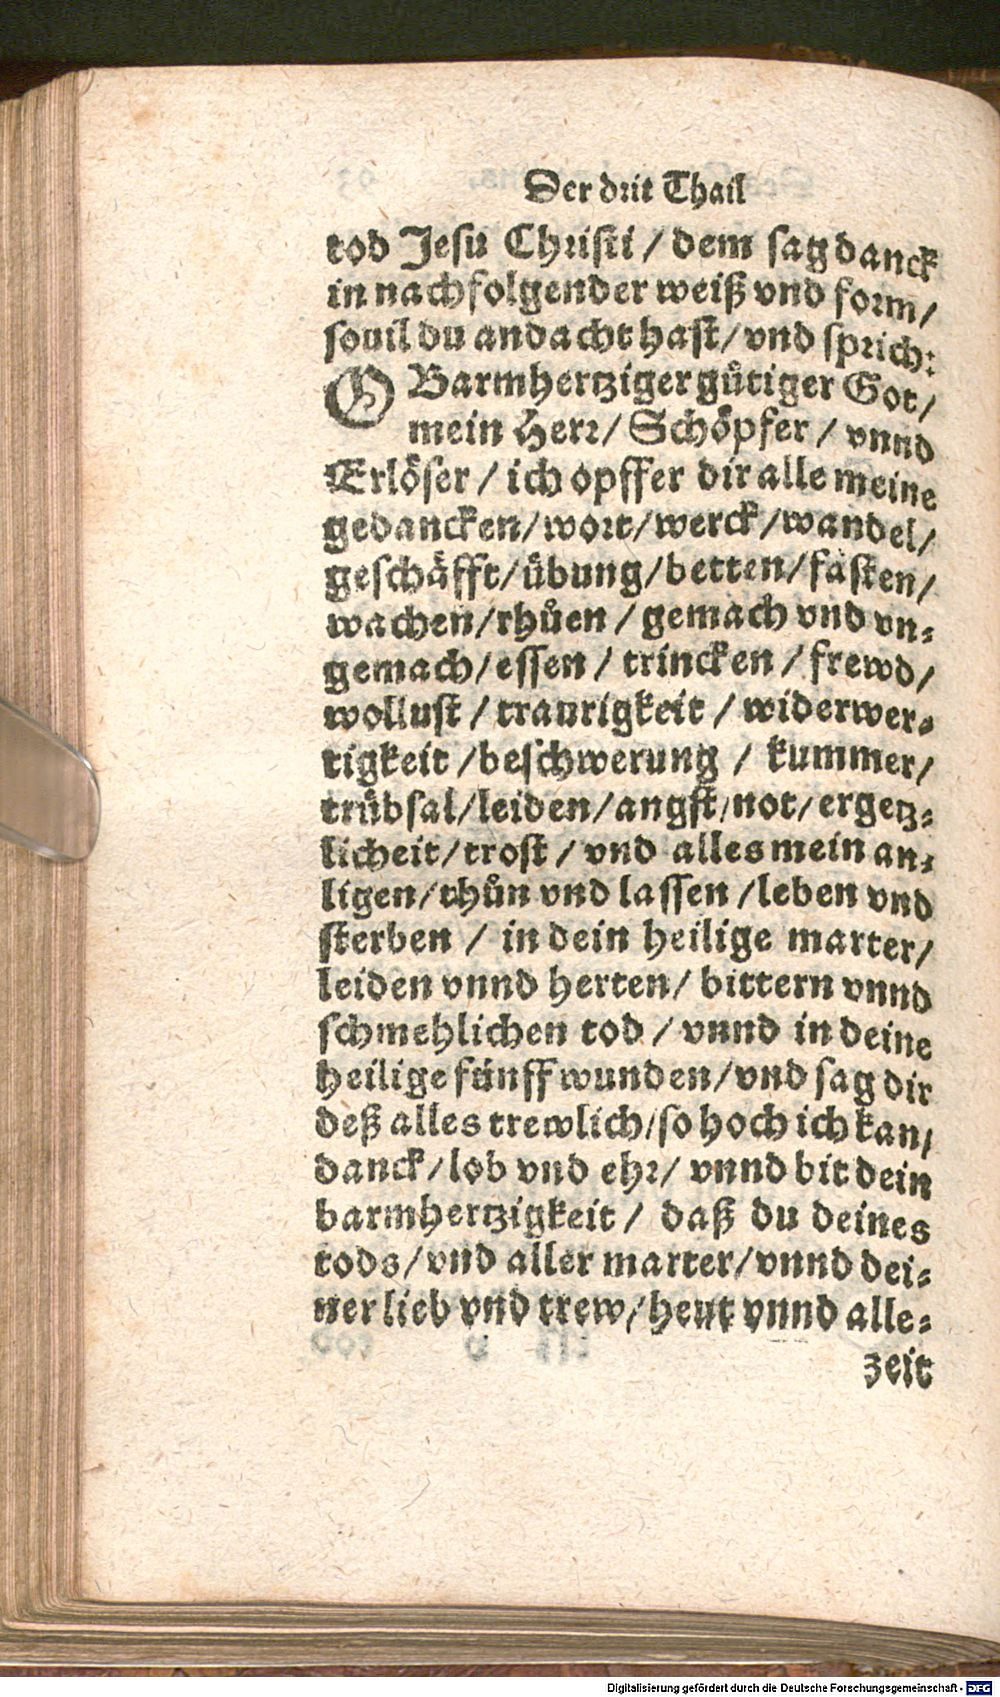 Der drit Thail
tod Jesu Christi / dem sag danck
in nachfolgender weiß vnd form /
souil du andacht hast / vnd sprich:
O Barmhertziger gůtiger Got /
mein Herr / Schöpfer / vnnd
Erlöser / ich opffer dir alle meine
gedancken / wort / werck / wandel /
geschäfft / übung / betten / fasten /
wachen / rhůen / gemach vnd vn=
gemach / essen / trincken / frewd /
wollust / traurigkeit / widerwer=
tigkeit / beschwerung / kummer /
trübsal / leiden / angst / not / ergetz=
licheit / trost / vnd alles mein an=
ligen / thůn vnd lassen / leben vnd
sterben / in dein heilige marter /
leiden vnnd herten / bittern vnnd
schmehlichen tod / vnnd in deine
heilige fünff wunden / vnd sag dir
deß alles trewlich / so hoch ich kan /
danck / lob vnd ehr / vnnd bit dein
barmhertzigkeit / daß du deines
tods / vnd aller marter / vnnd dei=
ner lieb vnd trew / heut vnnd alle=
zeit
Digitalisierung gefördert durch die Deutsche Forschungsgemeinschaft - DFG